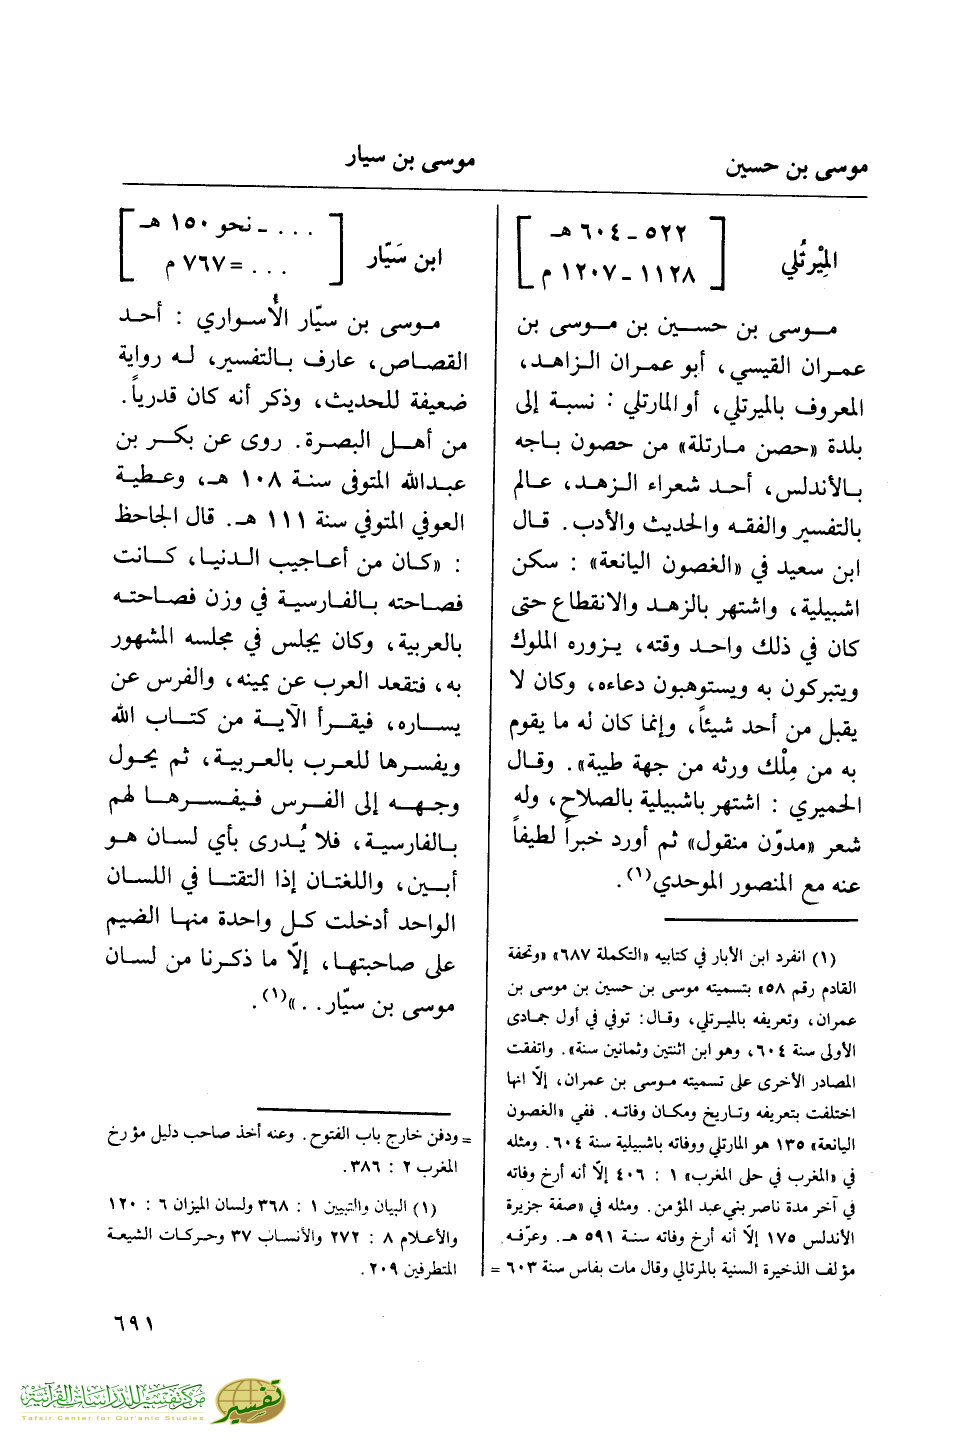 موسى بن حسين
موسى بن سيار
المِيْرتُلي
[ ٥٢٢ ـ ٦٠٤ هـ
١١٢٨ ـ ١٢٠٧ م ]
موسى بن حسين بن موسى بن
عمران القيسي، أبو عمران الزاهد،
المعروف بالميرتلي، أو المارتلي : نسبة إلى
بلدة «حصن مارتلة» من حصون باجه
بالأندلس، أحد شعراء الزهد، عالم
بالتفسير والفقه والحديث والأدب. قال
ابن سعيد في «الغصون اليانعة» : سكن
اشبيلية، واشتهر بالزهد والانقطاع حتى
كان في ذلك واحد وقته، يزوره الملوك
ويتبركون به ويستوهبون دعاءه، وكان لا
يقبل من أحد شيئاً، وإنما كان له ما يقوم
به من مِلْك ورثه من جهة طيبة». وقال
الحميري : اشتهر باشبيلية بالصلاح، وله
شعر «مدوّن منقول» ثم أورد خبراً لطيفاً
عنه مع المنصور الموحدي(١).
(١) انفرد ابن الأبار في كتابيه «التكملة ٦٨٧» «وتحفة
القادم رقم ٥٨» بتسميته موسى بن حسين بن موسى بن
عمران، وتعريفه بالميرتلي، وقال: توفي في أول جمادى
الأولى سنة ٦٠٤، وهو ابن اثنتين وثمانين سنة». واتفقت
المصادر الأخرى على تسميته موسى بن عمران، إلّا انها
اختلفت بتعريفه وتاريخ ومكان وفاته. ففي «الغصون
اليانعة» ١٣٥ هو المارتلي ووفاته باشبيلية سنة ٦٠٤. ومثله
في «المغرب في حلى المغرب» ١ : ٤٠٦ إلّا أنه أرخ وفاته
في آخر مدة ناصر بني عبد المؤمن. ومثله في «صفة جزيرة
الأندلس ١٧٥ إلّا أنه أرخ وفاته سنة ٥٩١ هـ. وعرّفه
مؤلف الذخيرة السنية بالمرتالي وقال مات بفاس سنة ٦٠٣ =
ابن سَيّار
[ . . . ـ نحو ١٥٠ هـ
. . . = ٧٦٧ م ]
موسى بن سيّار الأُسواري : أحد
القصاص، عارف بالتفسير، له رواية
ضعيفة للحديث، وذكر أنه كان قدرياً.
من أهل البصرة. روى عن بكر بن
عبدالله المتوفى سنة ١٠٨ هـ، وعطية
العوفي المتوفي سنة ١١١ هـ. قال الجاحظ
: «كان من أعاجيب الدنيا، كانت
فصاحته بالفارسية في وزن فصاحته
بالعربية، وكان يجلس في مجلسه المشهور
به، فتقعد العرب عن يمينه، والفرس عن
يساره، فيقرأ الآية من كتاب الله
ويفسرها للعرب بالعربية، ثم يحول
وجهه إلى الفرس فيفسرها لهم
بالفارسية، فلا يُدرى بأي لسان هو
أبين، واللغتان إذا التقتا في اللسان
الواحد أدخلت كل واحدة منها الضيم
على صاحبتها، إلّا ما ذكرنا من لسان
موسى بن سيّار. . »(١).
= ودفن خارج باب الفتوح. وعنه أخذ صاحب دليل مؤرخ
المغرب ٢ : ٣٨٦.
(١) البيان والتبيين ١ : ٣٦٨ ولسان الميزان ٦ : ١٢٠
والأعلام ٨ : ٢٧٢ والأنساب ٣٧ وحركات الشيعة
المتطرفين ٢٠٩.
٦٩١
مركز تفسير للدراسات القرآنية
Tafsir Center for Qur'anic Studies
تفسير